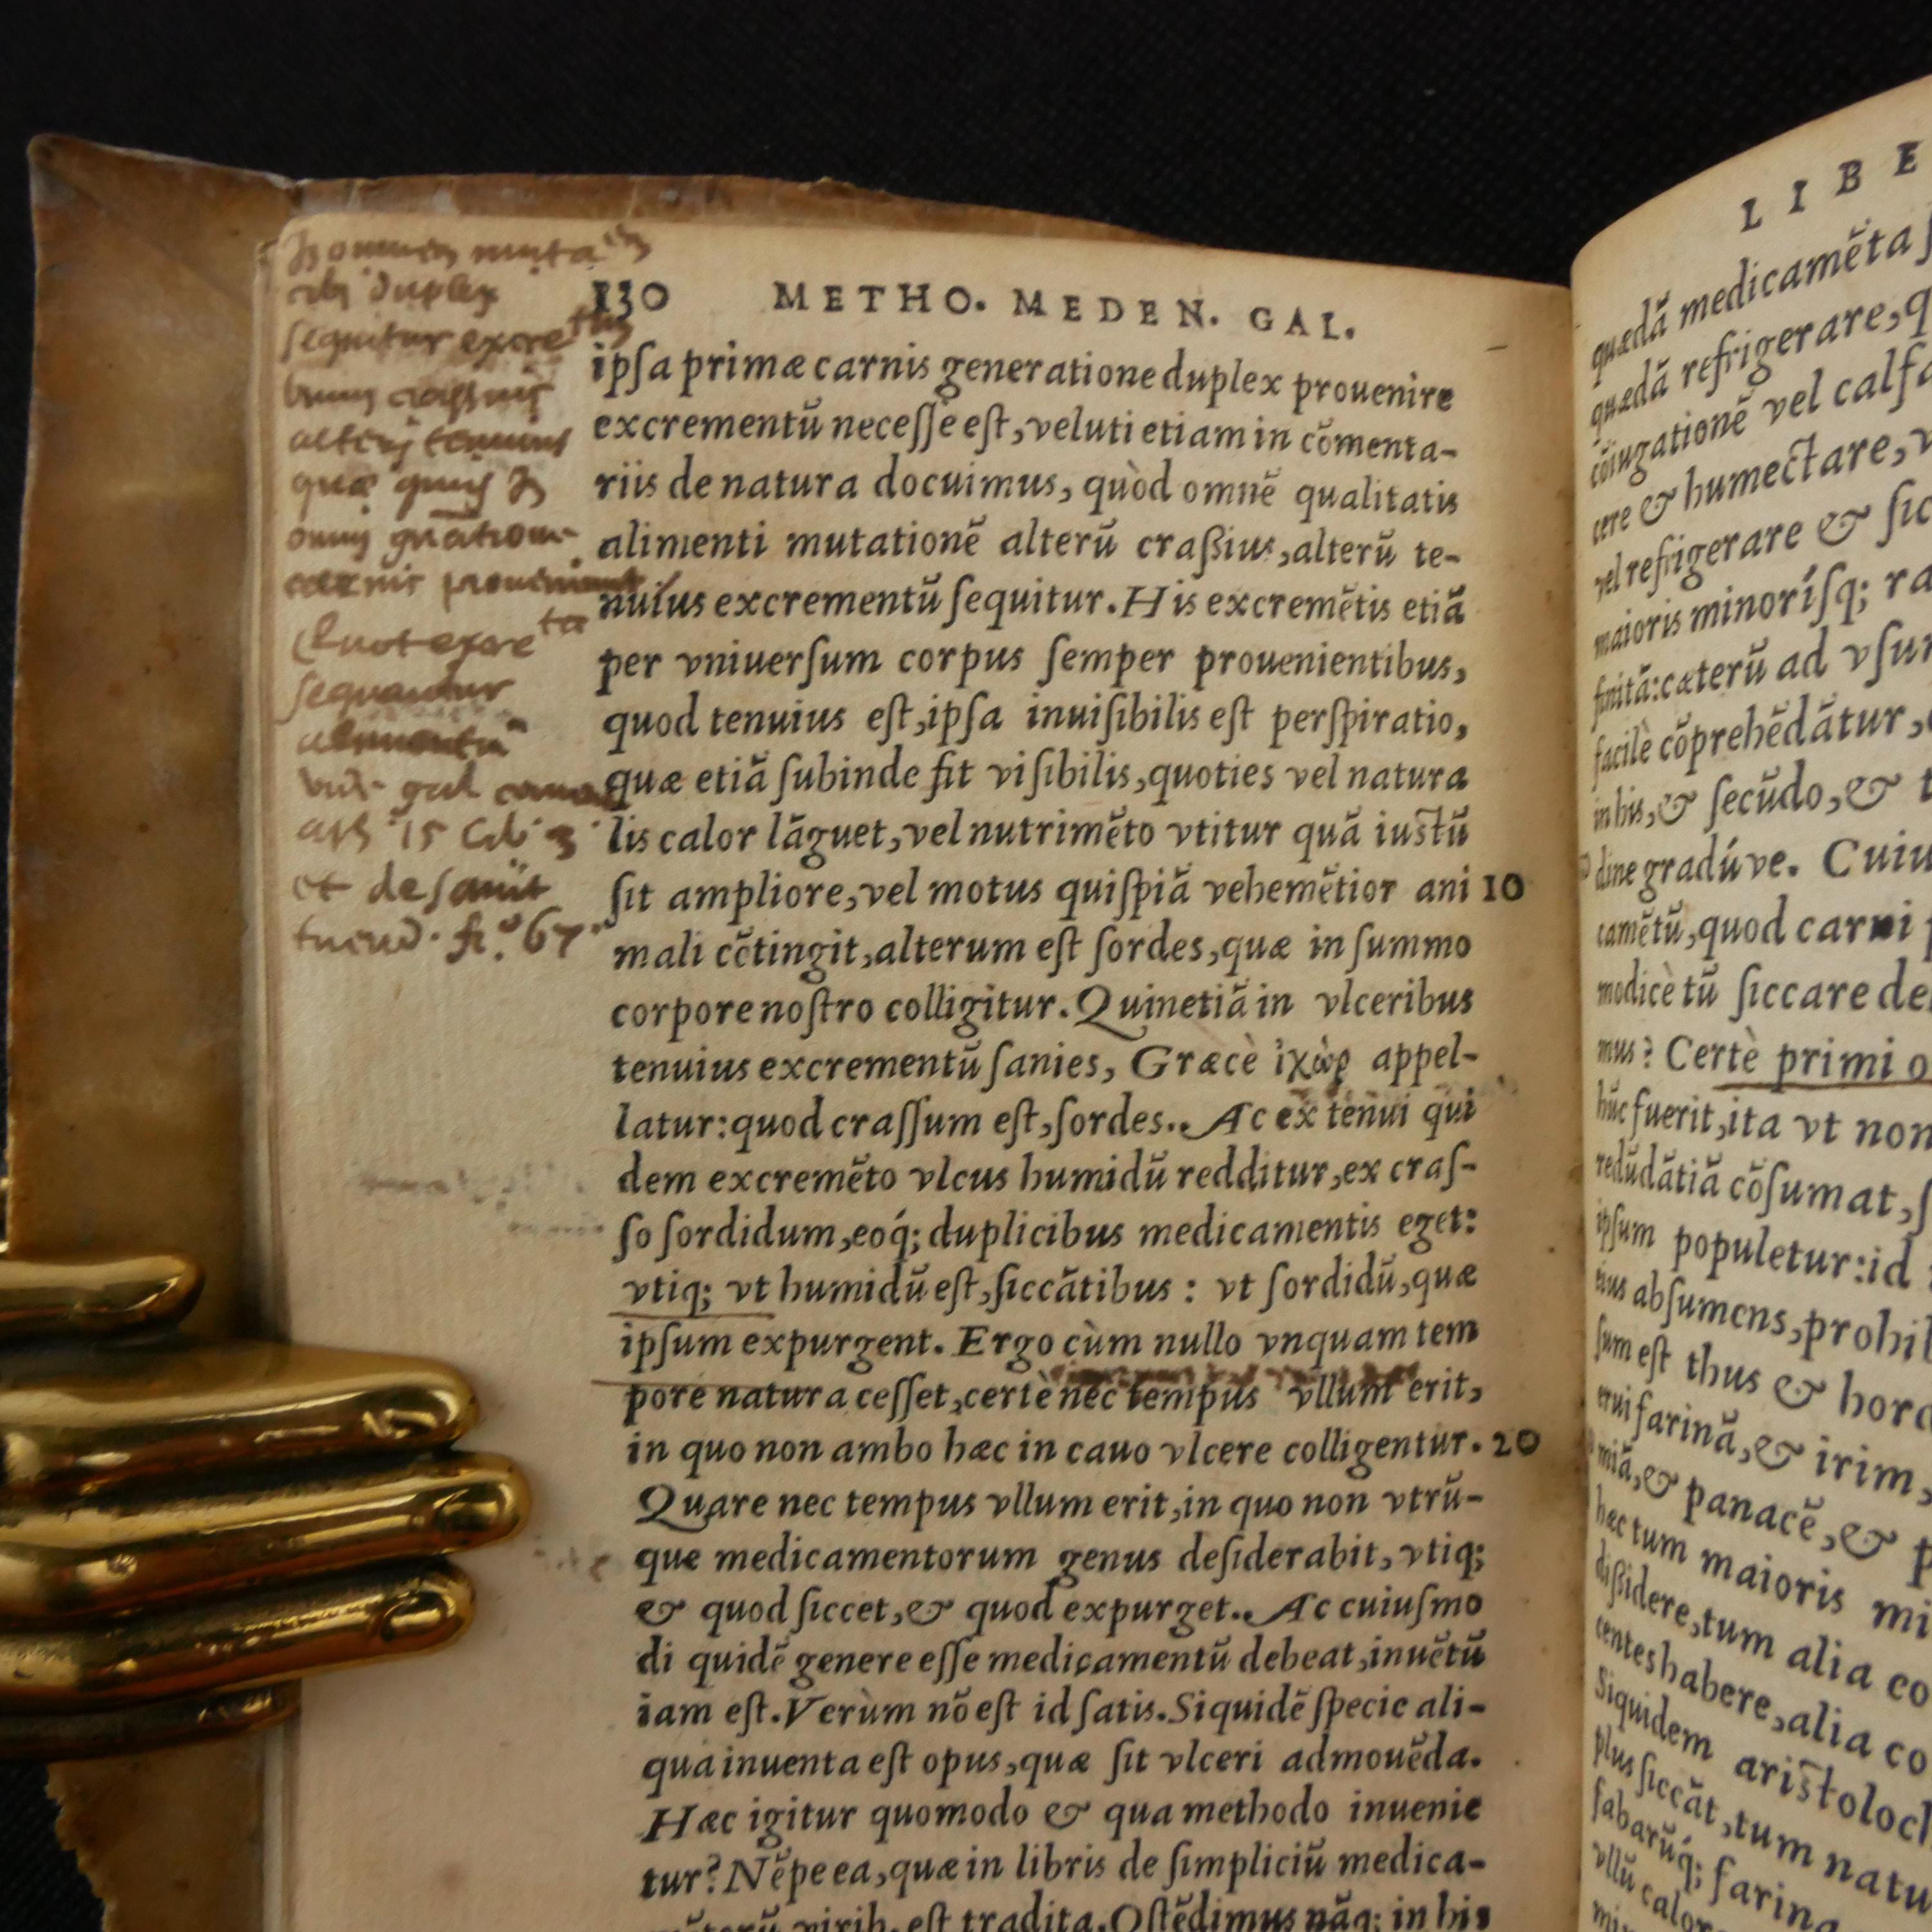 duplex
sequitur excretus
alteru tenuius
sequantur
et de sanit
tuend. 67
130 METHO. MEDEN. GAL.
ipſa primæ carnis generatione duplex prouenire
excrementũ neceſſe eſt, veluti etiam in cõmenta-
riis de natura docuimus, quòd omnẽ qualitatis
alimenti mutationẽ alterũ craßius, alterũ te-
nuius excrementũ ſequitur. His excremẽtis etiã
per vniuerſum corpus ſemper prouenientibus,
quod tenuius eſt, ipſa inuiſibilis eſt perſpiratio,
quæ etiã ſubinde fit viſibilis, quoties vel natura
lis calor lãguet, vel nutrimẽto vtitur quã iuſtũ
ſit ampliore, vel motus quiſpiã vehemẽtior ani 10
mali cõtingit, alterum eſt ſordes, quæ in ſummo
corpore noſtro colligitur. Quinetiã in vlceribus
tenuius excrementũ ſanies, Græcè ἰχὼρ appel-
latur: quod craſſum eſt, ſordes. Ac ex tenui qui
dem excremẽto vlcus humidũ redditur, ex craſ-
ſo ſordidum, eoq́; duplicibus medicamentis eget:
vtiq; vt humidũ eſt, ſiccãtibus: vt ſordidũ, quæ
ipſum expurgent. Ergo cùm nullo vnquam tem
pore natura ceſſet, certè nec tempus vllum erit,
in quo non ambo hæc in cauo vlcere colligentur. 20
Quare nec tempus vllum erit, in quo non vtrũ-
que medicamentorum genus deſiderabit, vtiq;
& quod ſiccet, & quod expurget. Ac cuiuſmo
di quidẽ genere eſſe medicamentũ debeat, inuẽtũ
iam eſt. Verùm nõ eſt id ſatis. Siquidẽ ſpecie ali-
qua inuenta eſt opus, quæ ſit vlceri admouẽda.
Hæc igitur quomodo & qua methodo inuenie
tur? Nẽpe ea, quæ in libris de ſimpliciũ medica-
virib. eſt tradita. Oſtẽdimus nãq; in his
LIBE
quædã medicamẽta
quædã refrigerare, q
cõiugationẽ vel calfa
cere & humectare, v
vel refrigerare & ſic
maioris minoríſq; ra
finitã: cæterũ ad vſur
facilè cõprehẽdãtur,
in his, & ſecũdo, & t
dine gradúve. Cuiu
camẽtũ, quod carni
modicè tũ ſiccare de
mus? Certè primi o
hũc fuerit, ita vt non
redũdãtiã cõſumat, ſ
ipſum populetur: id
eius abſumens, prohib
ſum eſt thus & hord
erui farinã, & irim,
miã, & panacẽ, & p
hæc tum maioris mi
dißidere, tum alia co
centes habere, alia co
Siquidem ariſtoloch
plus ſiccãt, tum natu
fabarũq́; farina
vllũ calor